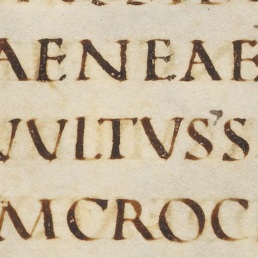 AENEAE
VULTUS'S
MCROC